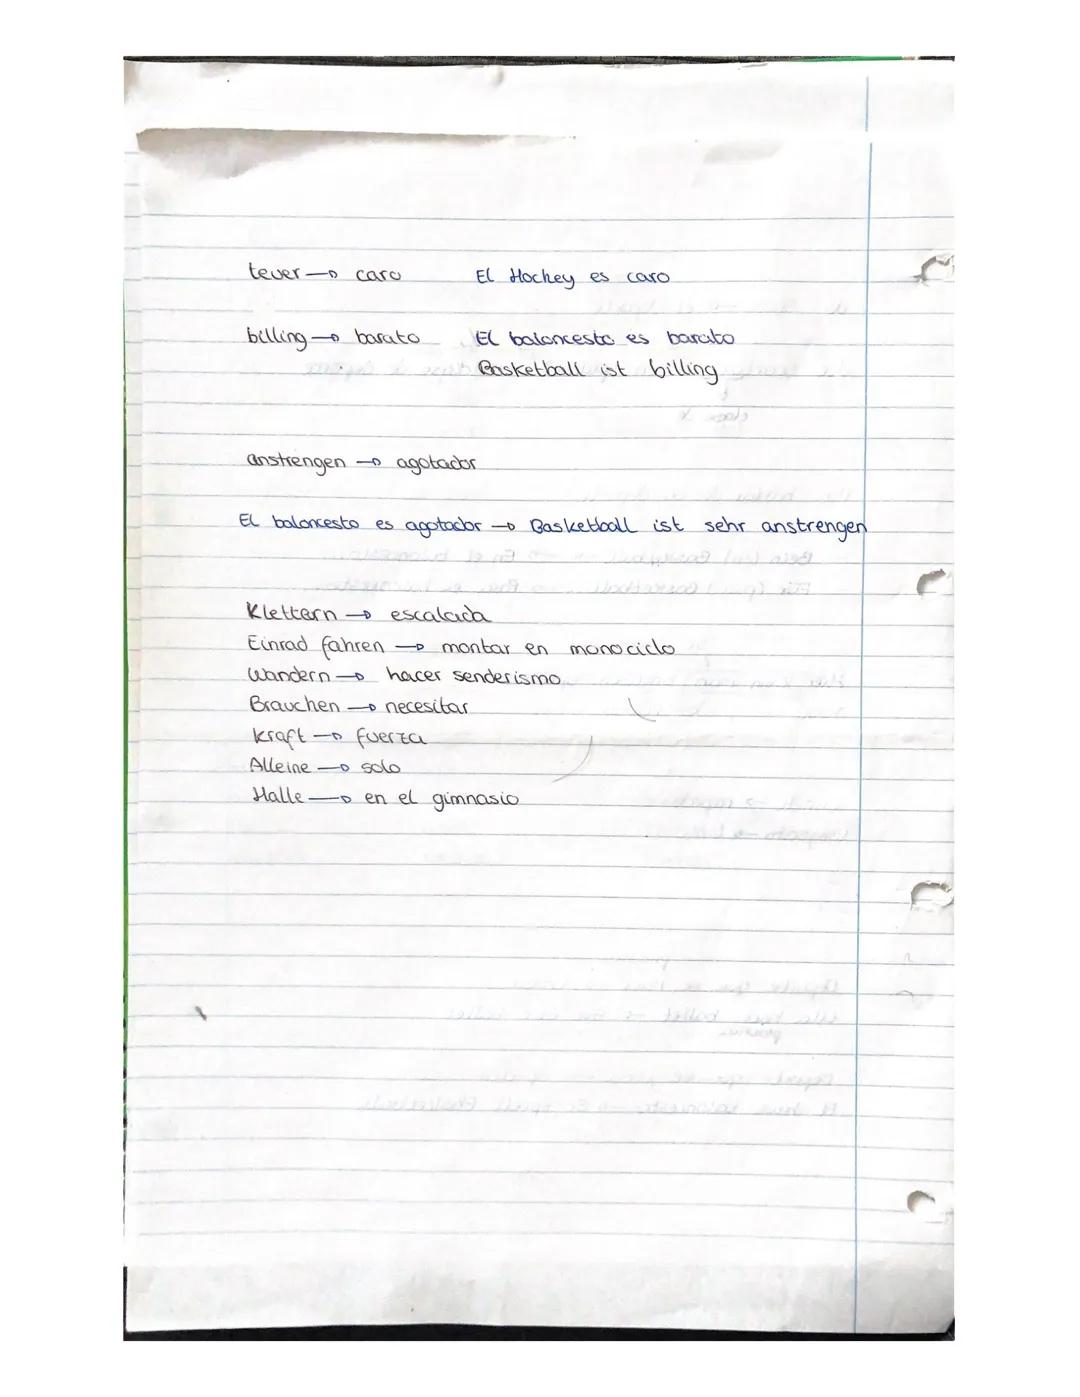 teuer → caro El Hockey es caro
billing → barato El baloncesto es barato
Basketball ist billing
anstrengen → agotador
El baloncesto es agotador → Basketball ist sehr anstrengen
Klettern → escalada
Einrad fahren → montar en monociclo
Wandern → hacer senderismo
Brauchen → necesitar
Kraft → fuerza
Alleine → solo
Halle → en el gimnasio